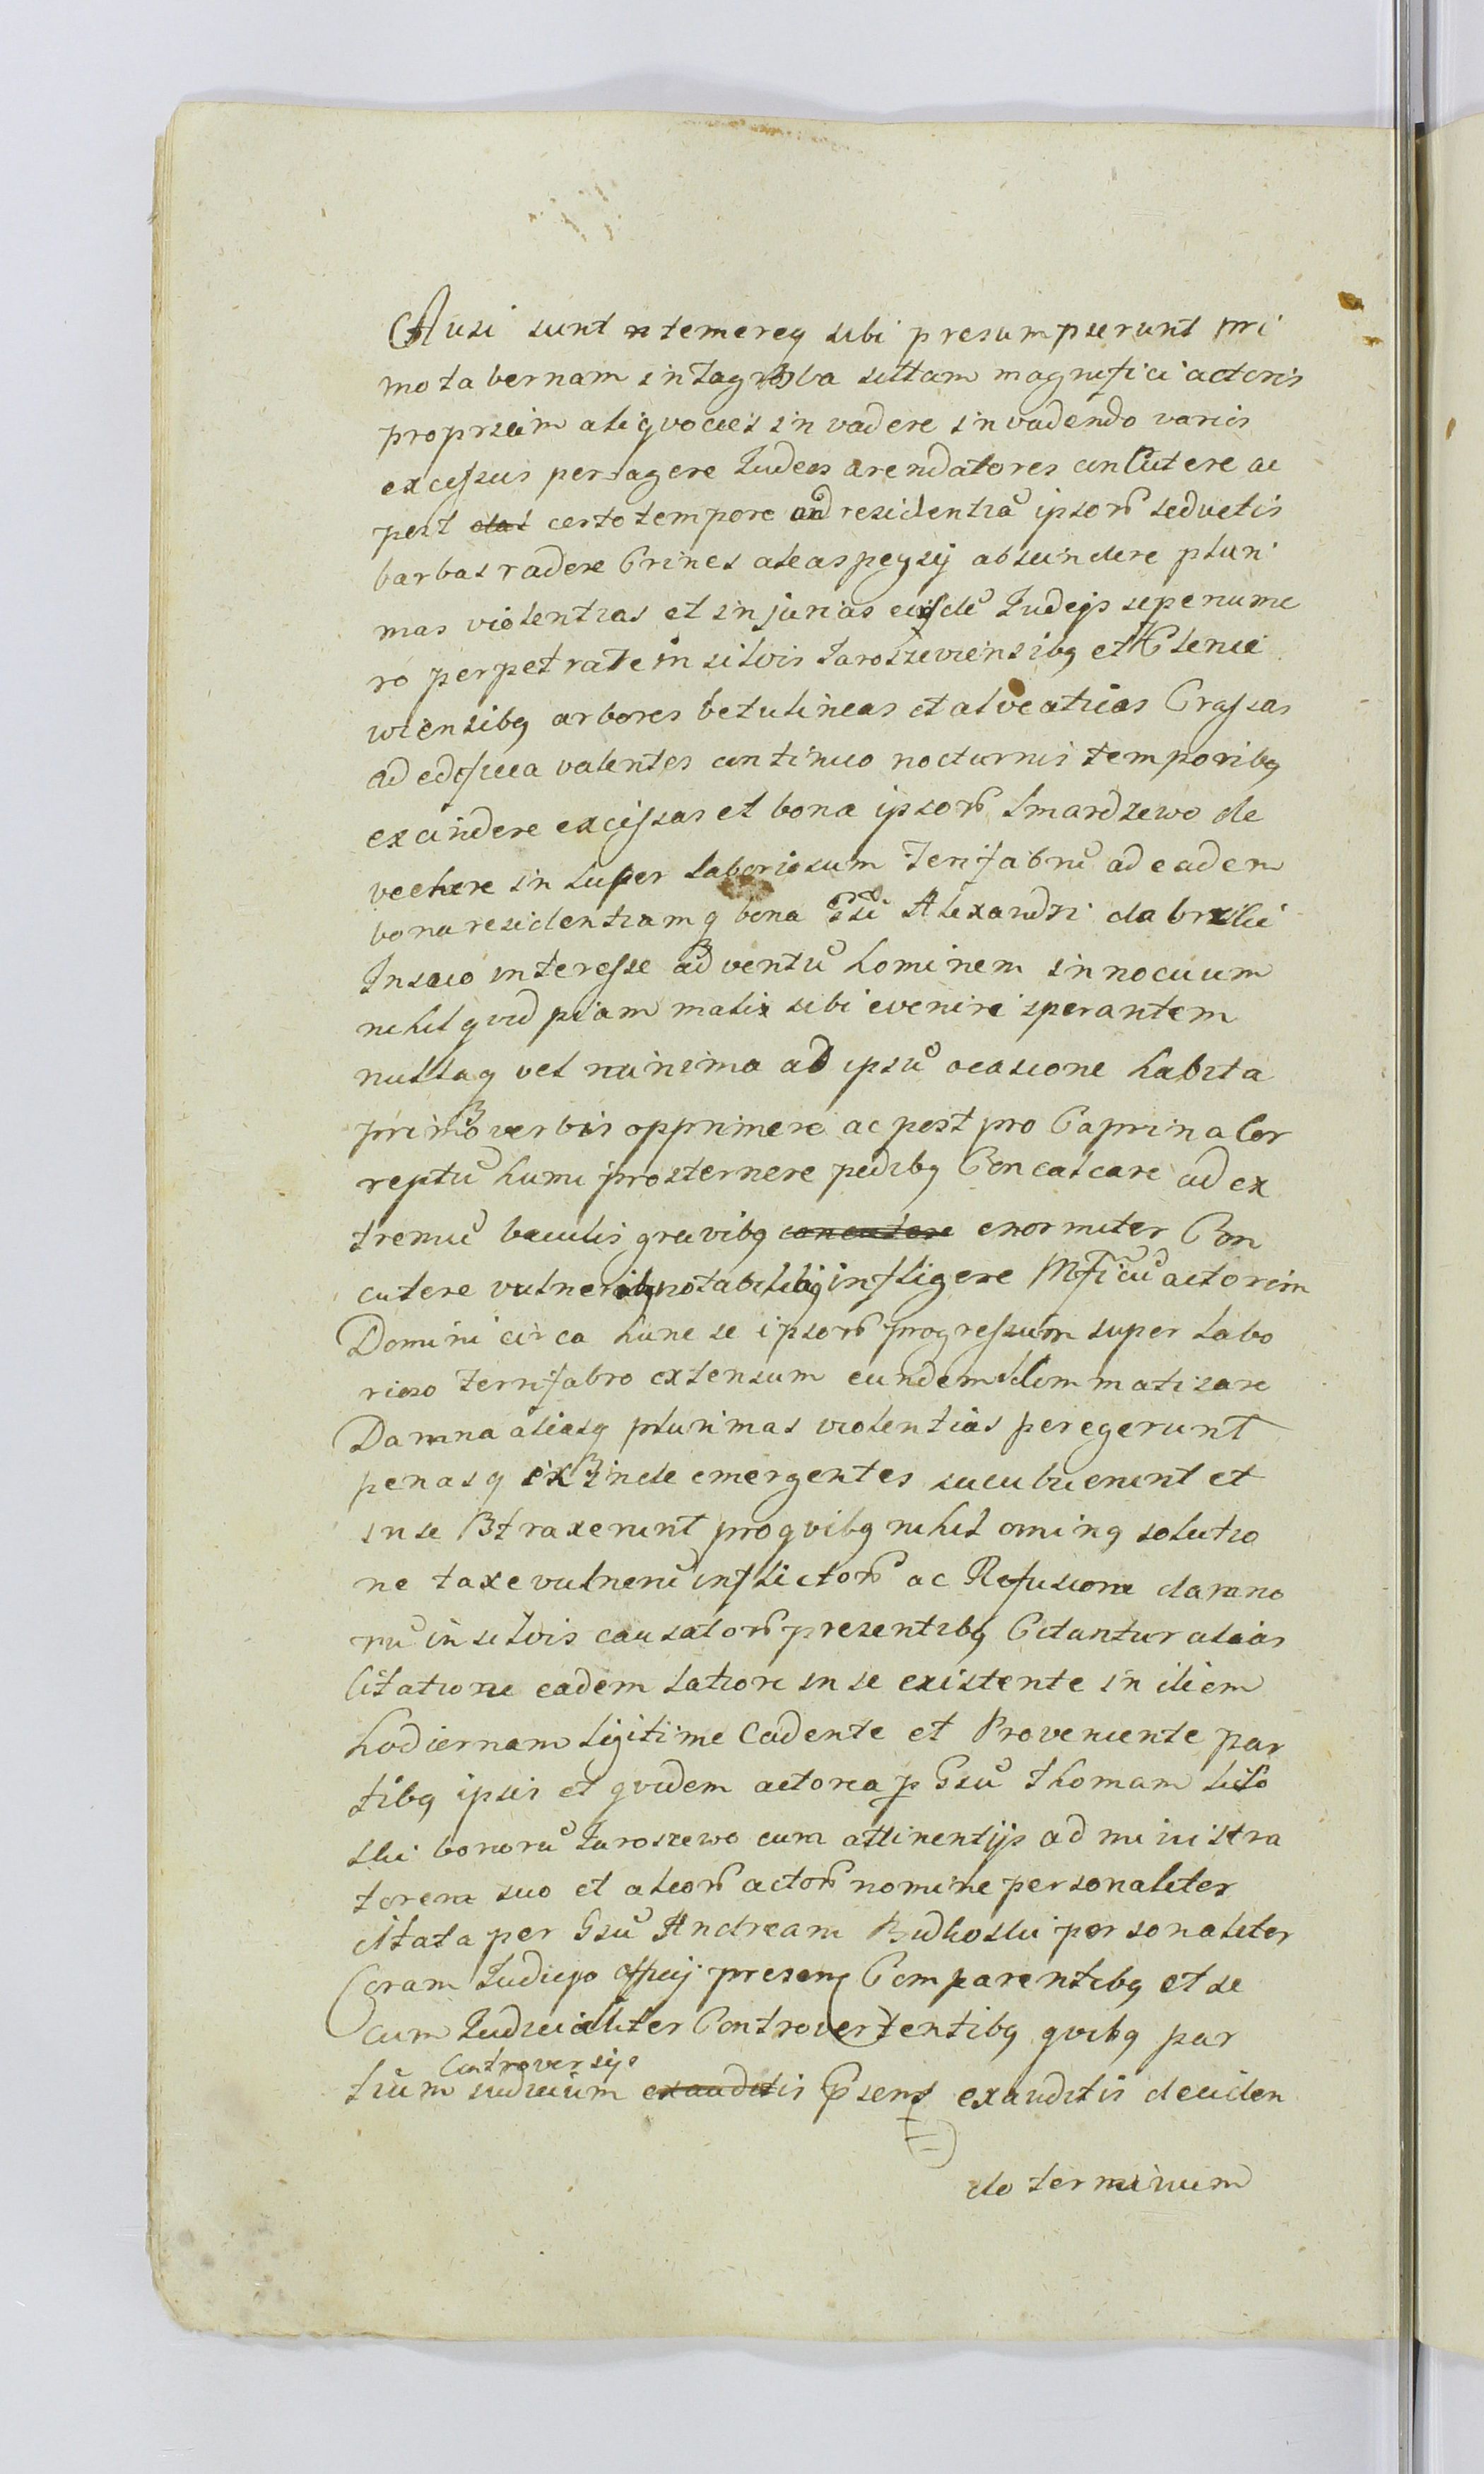 Ausi sunt temereq sibi presumpserunt pri
mo tabernam in sittam magnifici actoris
propriam aliqvocies invadere invadendo varios
excessus peragere Judeos arendatores concutere ac
post certo tempore ad residentiã ipsorũ seductis
barbas radere Crines alias peysy absundere pluri
mas violentias et injurias eisdẽ Judeijs sepenume
ro perpetrare in silvis Jaroszeviensibq et Elenie
wiensibq arbores betulineas et alveaticas Crassas
ad edificia valentes continuo nocturnis temporibq
excindere excissas et bona ipsorũ Smardzewo de
vechere insuper laboriosum Ferrifabrũ ad eadem
bona residentiamq bona Gsi Alexandri dabrski
In suo interesse adventũ hominem innocuum
nihil qvidpiam malis sibi evenire sperantem
nullaq vel minima ad ipsũ ocasione habita
primo verbis opprimere ac post pro Caprina Cor
reptũ humi prosternere pedibq Concalcare ad ex
tremũ baculis gravibq concutere enormiter Con
cutere vulneribq notabilibq infligere Mficũ actorem
Domini circa hunc se ipsorũ progressum super labo
rioso ferrifabro extensum eundem
Damna aliasq plurimas violentias peregerunt
penasq exinde emergentes sucubuerunt et
in se traxerunt pro qvibq nihil ominq solutio
ne taxe vulnerũ inflictorũ ac Refusione damno
rũ in silvis causatorũ presentibq Citantur alias
Citatione eadem latiori in se existente in diem
hodiernam ligitime Cadente et Proveniente par
tibq ipsis et qvidem actorea p Gsũ Thomam
ski bonorũ Jaroszewo cum attinentijs administra
torem suo et aliorũ actorũ nomine personaliter
citata per Gsũ Andream personaliter
Coram Judicijo officij presen Comparentibq et se
cum Judicialiter Controvertentibq qvibq par
tium Controversije judicium exauditis psens exauditis deciden
do terminum